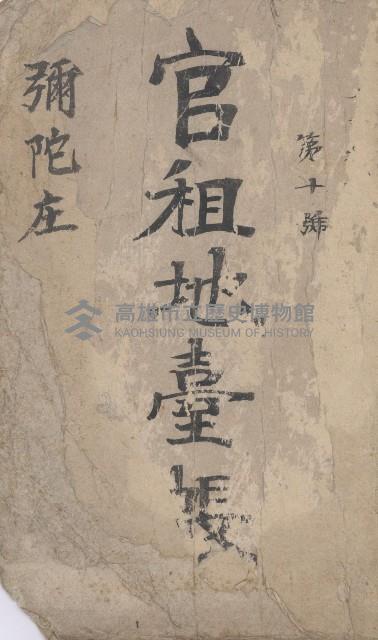 第十號
官租地臺帳
彌陀庄
高雄市立歷史博物館
KAOHSIUNG MUSEUM OF HISTORY